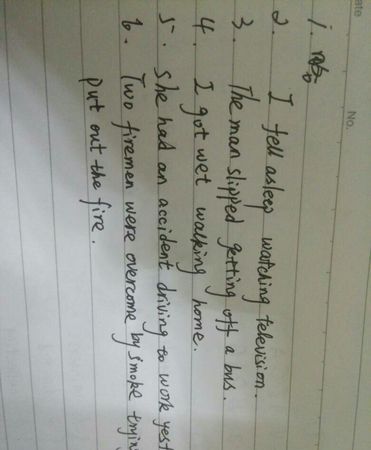 ate
No.
1.
2. I fell asleep watching television.
3. The man slipped getting off a bus.
4. I got wet walking home.
5. She had an accident driving to work yest
6. Two firemen were overcome by smoke tryin
put out the fire.